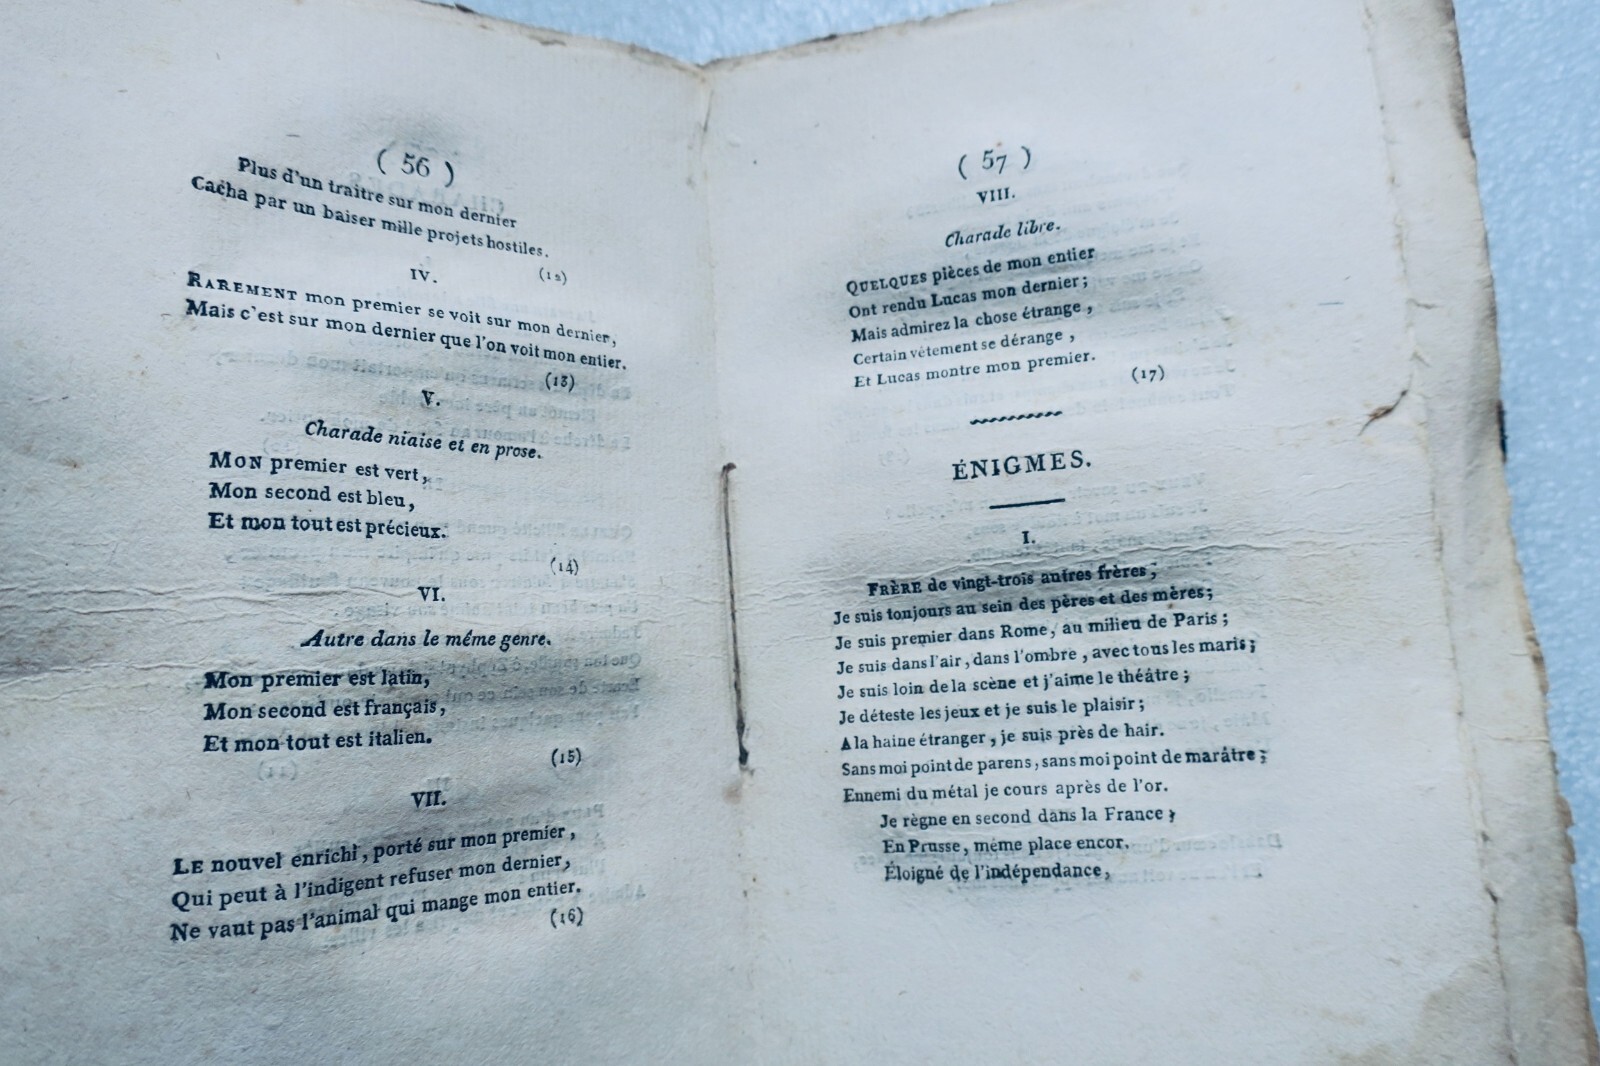 ( 56 )
Plus d'un traître sur mon dernier
Cacha par un baiser mille projets hostiles.
(12)
IV.
RAREMENT mon premier se voit sur mon dernier,
Mais c'est sur mon dernier que l'on voit mon entier.
(13)
V.
Charade niaise et en prose.
MON premier est vert,
Mon second est bleu,
Et mon tout est précieux.
(14)
VI.
Autre dans le même genre.
Mon premier est latin,
Mon second est français,
Et mon tout est italien.
(15)
VII.
LE nouvel enrichi, porté sur mon premier,
Qui peut à l'indigent refuser mon dernier,
Ne vaut pas l'animal qui mange mon entier.
(16)
( 57 )
VIII.
Charade libre.
QUELQUES pièces de mon entier
Ont rendu Lucas mon dernier;
Mais admirez la chose étrange,
Certain vêtement se dérange,
Et Lucas montre mon premier.
(17)
ÉNIGMES.
I.
FRÈRE de vingt-trois autres frères,
Je suis toujours au sein des pères et des mères;
Je suis premier dans Rome, au milieu de Paris;
Je suis dans l'air, dans l'ombre, avec tous les maris;
Je suis loin de la scène et j'aime le théâtre;
Je déteste les jeux et je suis le plaisir;
A la haine étranger, je suis près de hair.
Sans moi point de parens, sans moi point de marâtre;
Ennemi du métal je cours après de l'or.
Je règne en second dans la France;
En Prusse, même place encor.
Éloigné de l'indépendance,